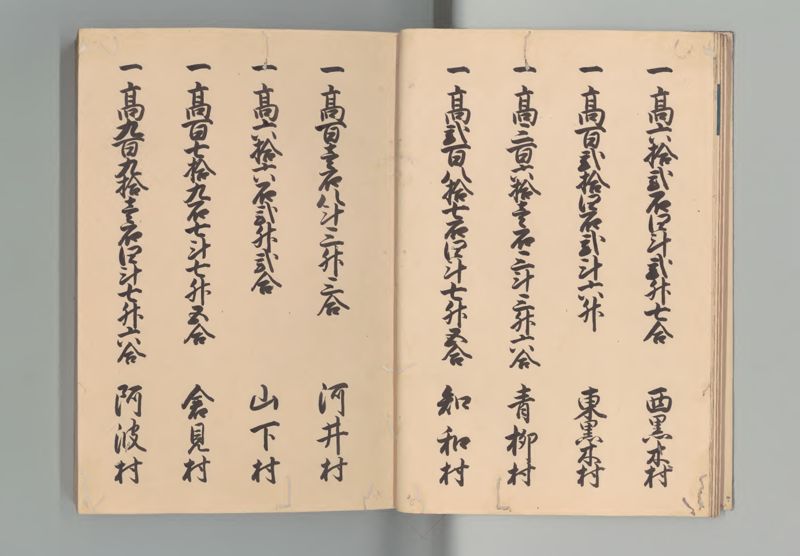 一高六拾弐石四斗弐升七合 西黒木村
一高百弐拾四石弐斗六升 東黒木村
一高三百六拾壱石二斗三升六合 青柳村
一高弐百八拾七石四斗七升五合 知和村
一高百壱石八斗三升三合 河井村
一高六拾六石弐升弐合 山下村
一高百七拾九石七斗七升五合 倉見村
一高九百九拾壱石四斗七升六合 阿波村